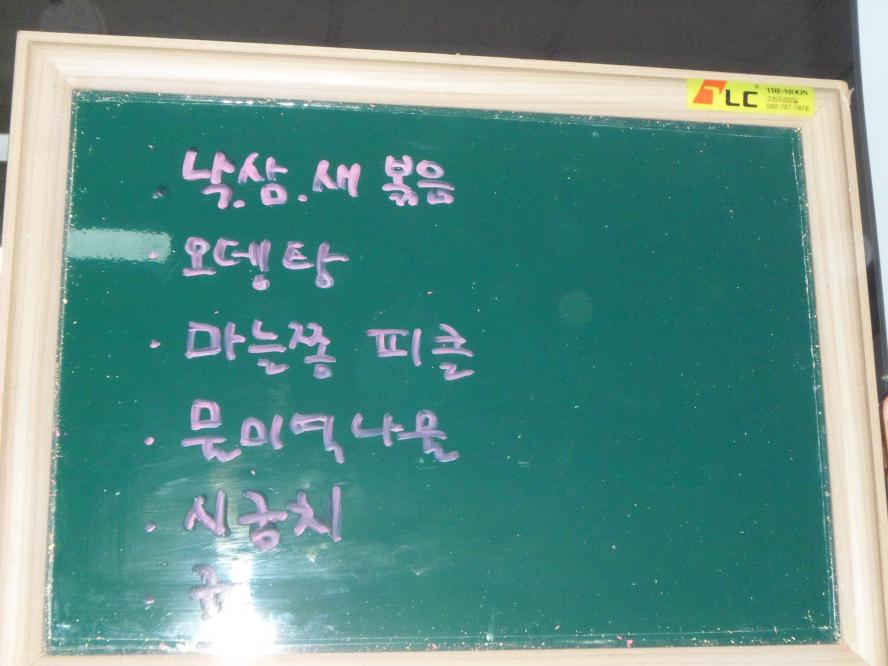 TLC THE-MOON
080-787-7878
· 낙.삼.새 볶음
· 오뎅탕
· 마늘쫑 피클
· 물미역나물
· 시금치
·